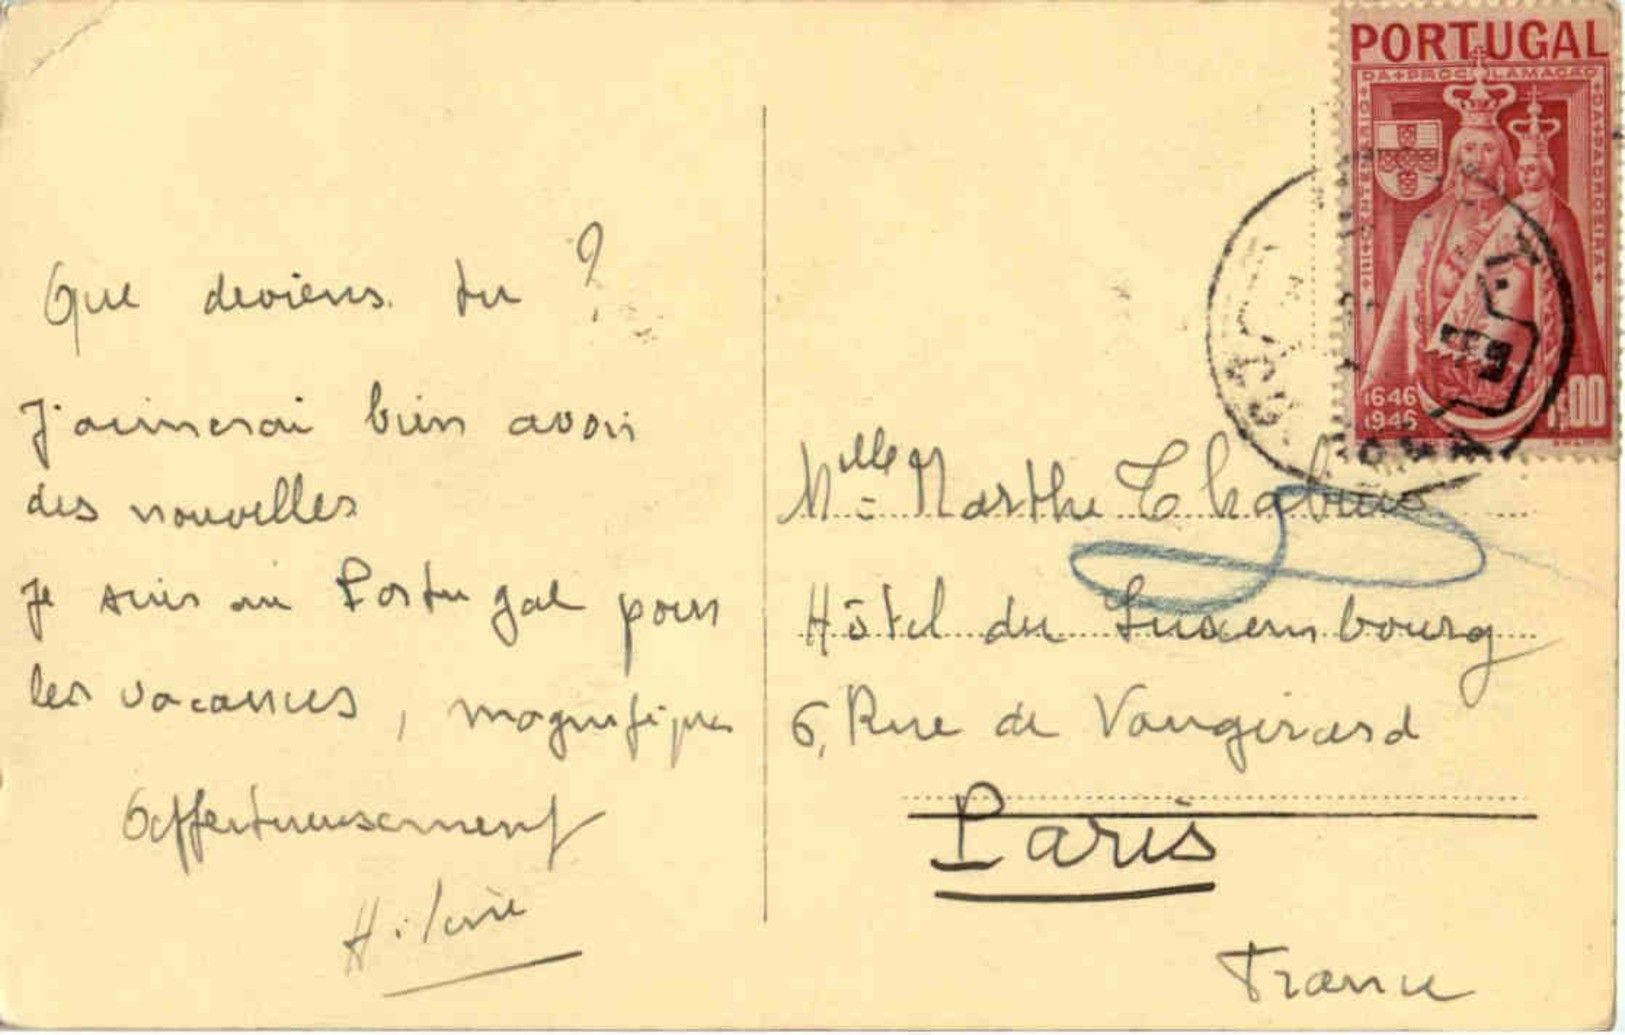 Que deviens tu ?
J'aimerai bien avoir
des nouvelles
Je suis au Portugal pour
les vacances, magnifiques
affectueusement
Hilaire
PORTUGAL
DA PROCLAMAÇÃO
DA PADROEIRA
CENTENÁRIO
1646
1946
1$00
Mlle Marthe
Hôtel du Luxembourg
6, Rue de Vaugirard
Paris
France